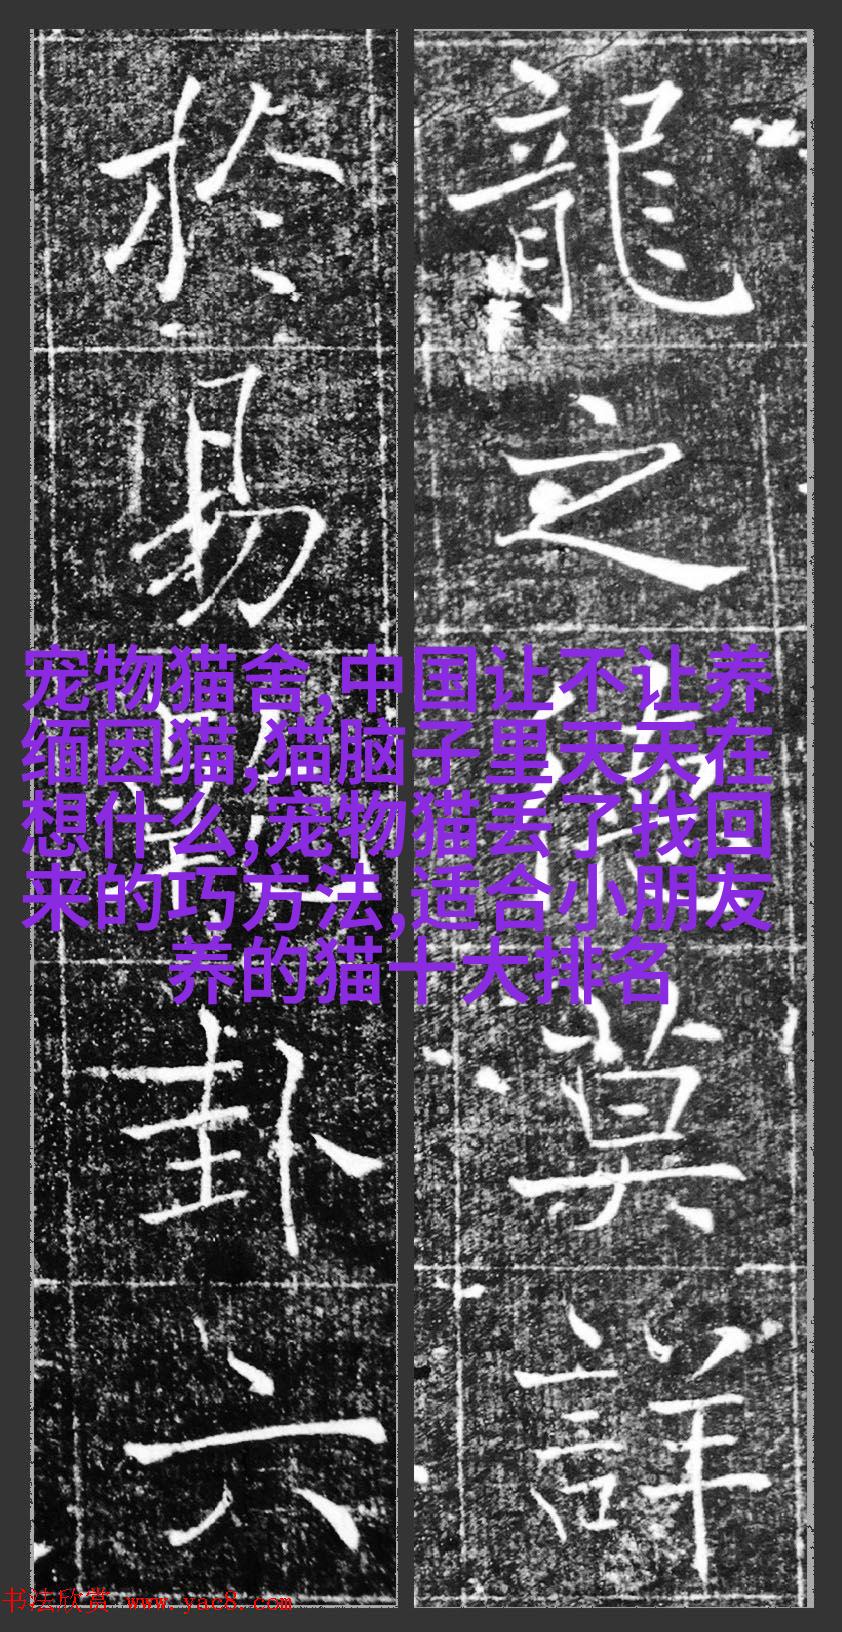 龍之莫詳
於易卦六
宠物猫舍,中国让不让养
缅因猫,猫脑子里天天在
想什么,宠物猫丢了找回
来的巧方法,适合小朋友
养的猫十大排名
书法欣赏 www.yac8.com